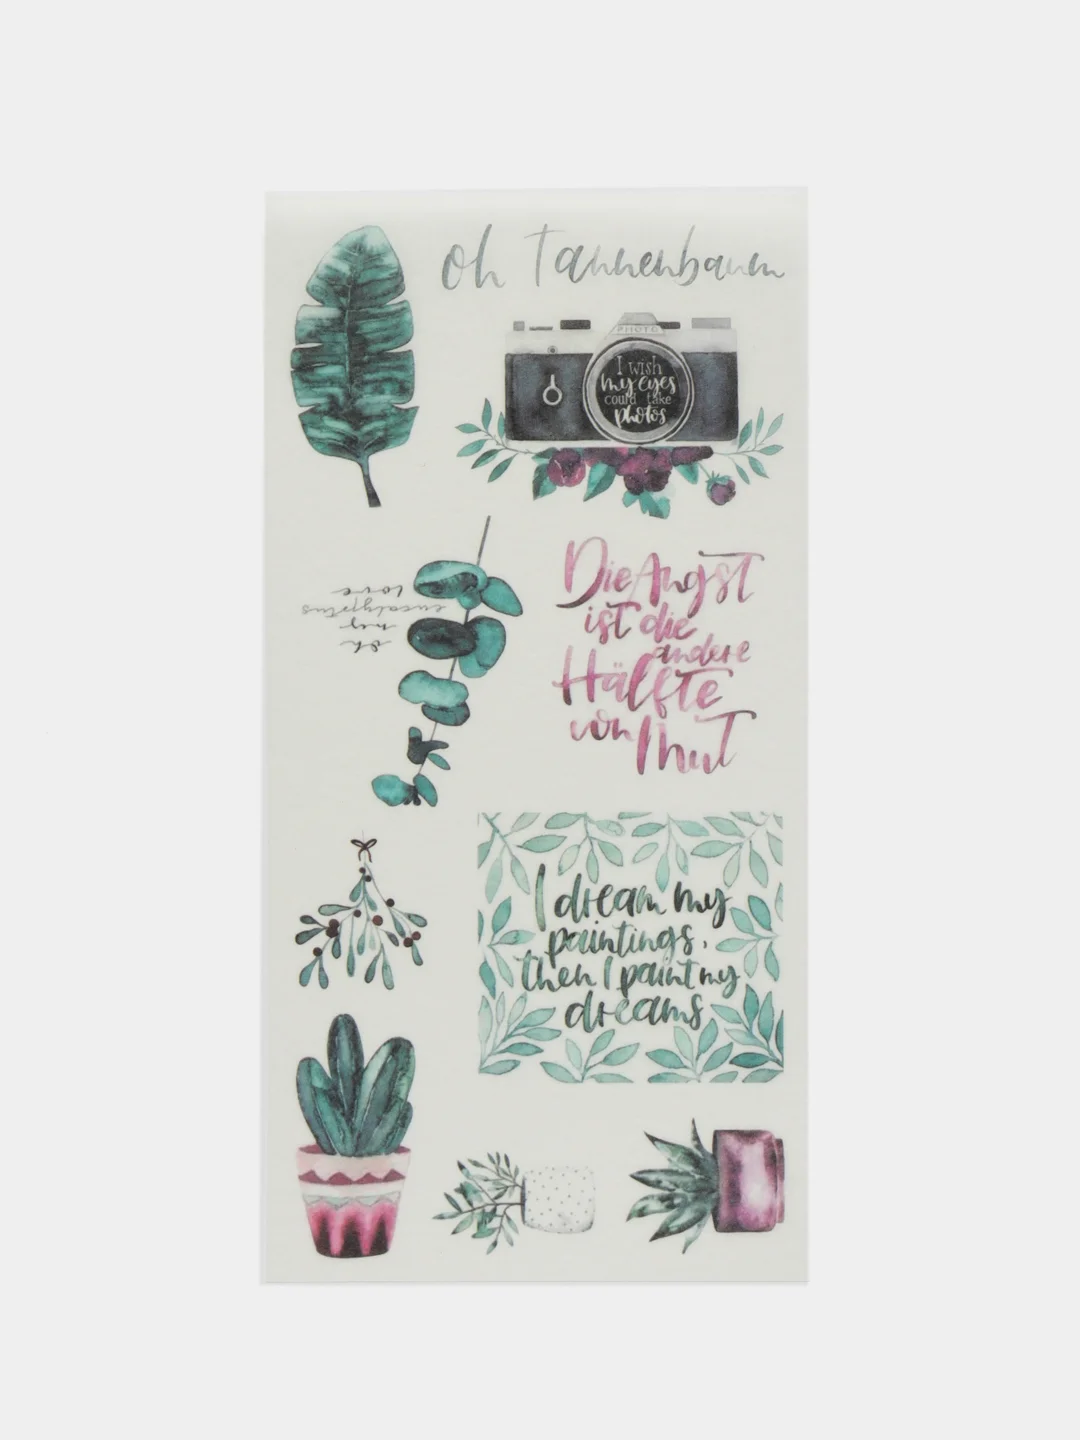 oh Tannenbaum
PHOTO
I wish
my eyes
could take
photos
Die Angst
ist die
andere
Hälfte
von Mut
oh
my
eucalyptus
love
I dream my
paintings,
then I paint my
dreams